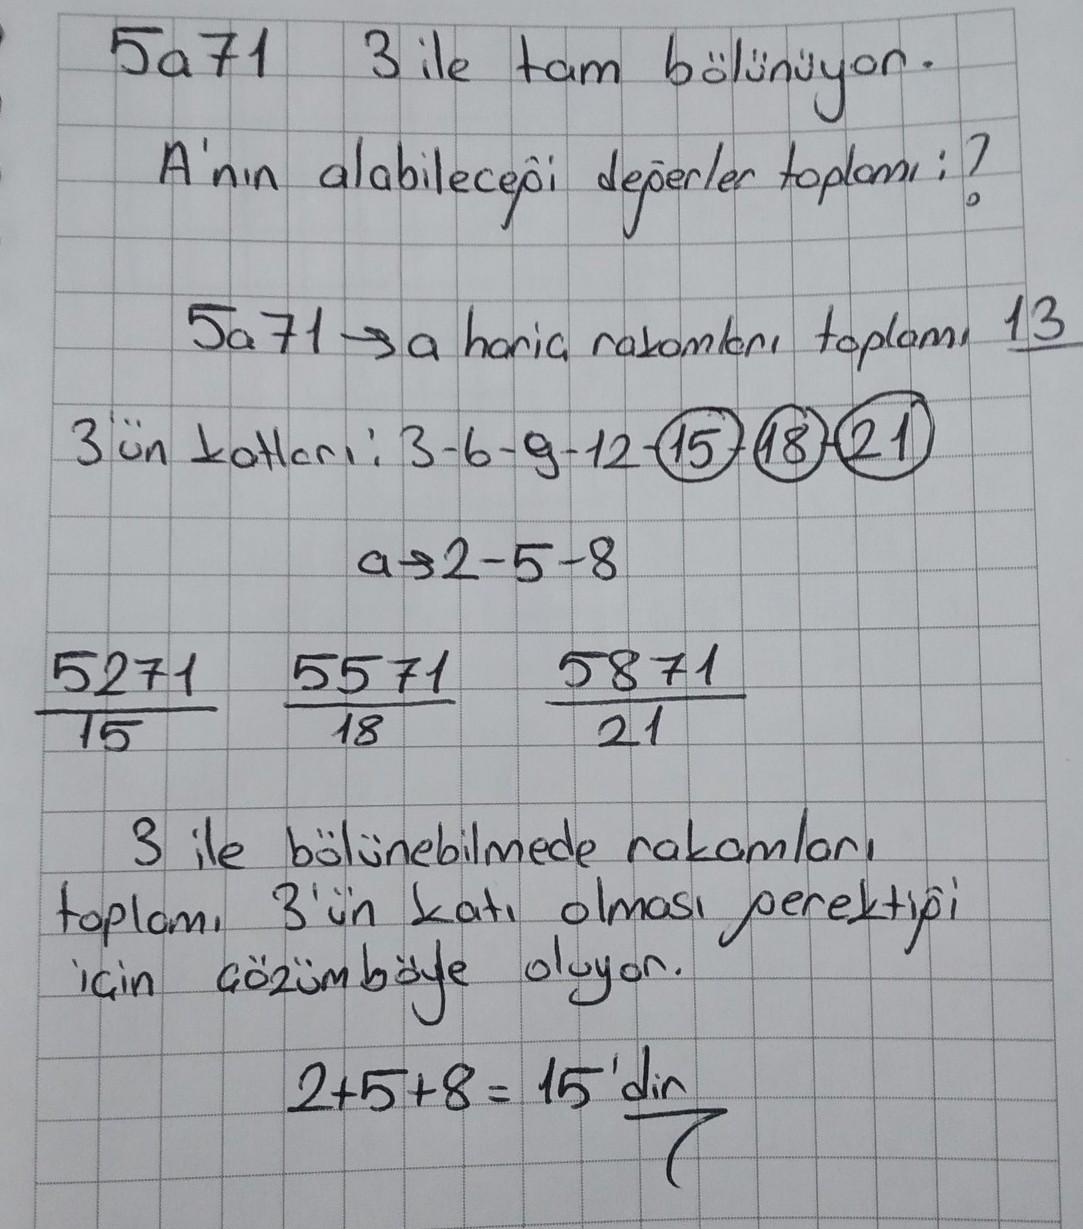 5a71 3 ile tam bölünüyor.
A'nın alabileceği değerler toplamı: ?
5a71 → a hariç rakamları toplamı 13
3'ün katları: 3-6-9-12-15-18-21
a→2-5-8
5271 5571 5871
15 18 21
3 ile bölünebilmede rakamları
toplamı 3'ün katı olması gerektiği
için çözüm böyle oluyor.
2+5+8= 15'dir